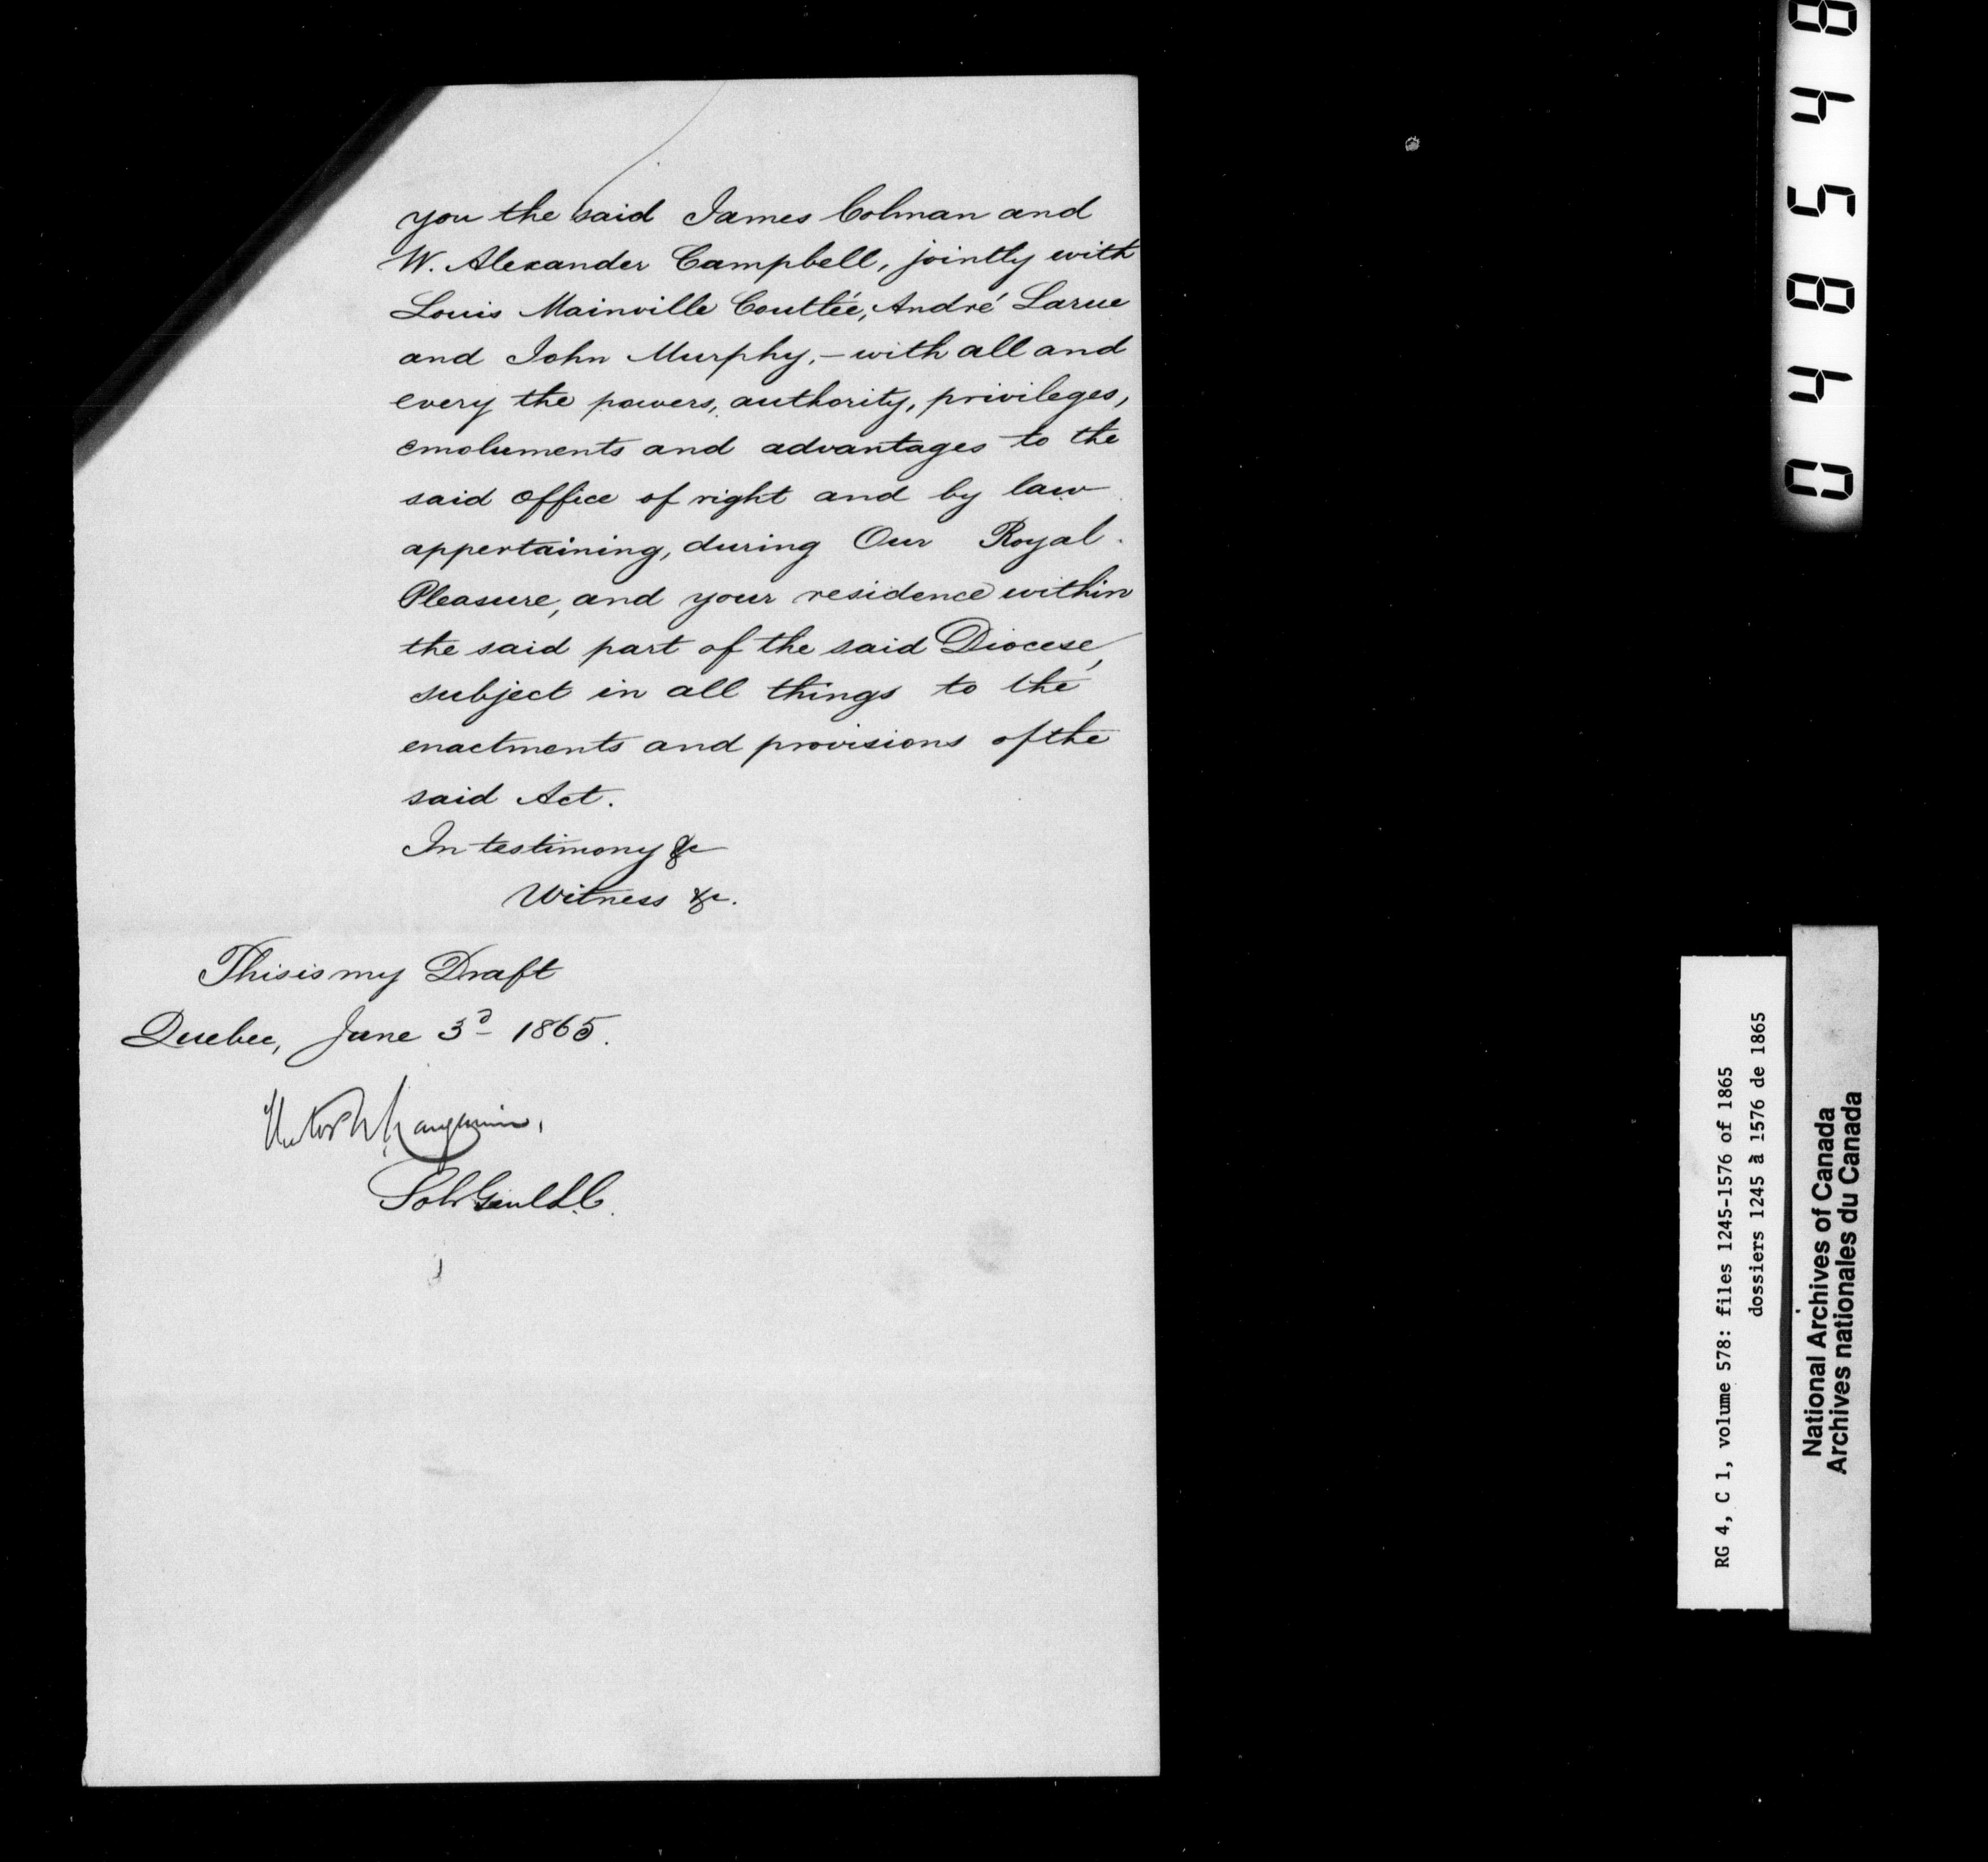 you the said James Colman and
W. Alexander Campbell, jointly with
Louis Mainville Coutlée, André Larue
and John Murphy, — with all and
every the powers, authority, privileges,
emoluments and advantages to the
said office of right and by law
appertaining, during Our Royal
Pleasure, and your residence within
the said part of the said Diocese,
subject in all things to the
enactments and provisions of the
said Act.
In testimony &c
Witness &c.
This is my Draft
Quebec, June 3d 1865.
Sol Genl L.C.
048548
RG 4, C 1, volume 578: files 1245-1576 of 1865
dossiers 1245 à 1576 de 1865
National Archives of Canada
Archives nationales du Canada